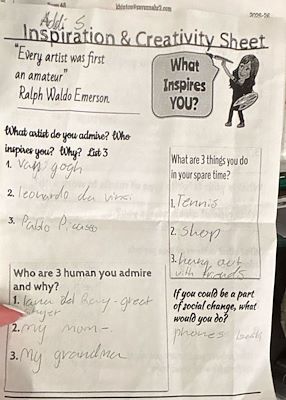 Addi S.
2025-26
Inspiration & Creativity Sheet
"Every artist was first
an amateur"
Ralph Waldo Emerson
What
Inspires
YOU?
What artist do you admire? Who
inspires you? Why? List 3
1. Van gogh
2. leonardo da vinci
3. Pablo Picasso
What are 3 things you do
in your spare time?
1. Tennis
2. shop
3. hang out
with friends
Who are 3 human you admire
and why?
1. Lana del Rey - great
2. my mom -
3. My grandma
If you could be a part
of social change, what
would you do?
phones